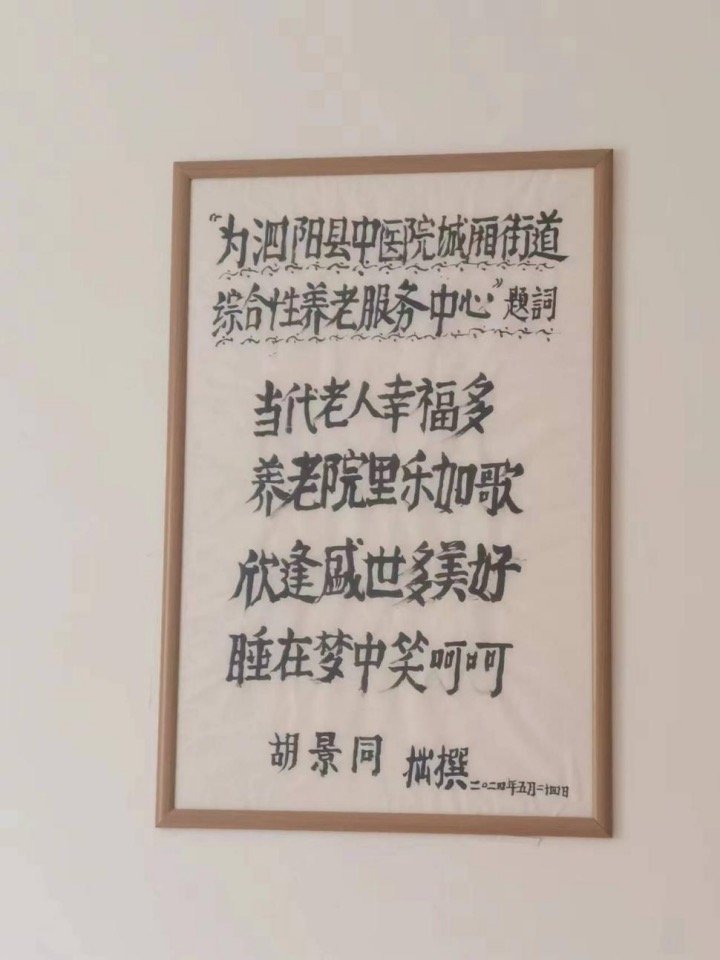 “为泗阳县中医院城厢街道
综合性养老服务中心”题詞
当代老人幸福多
养老院里乐如歌
欣逢盛世多美好
睡在梦中笑呵呵
胡景同 拙撰 二〇二四年五月二十四日